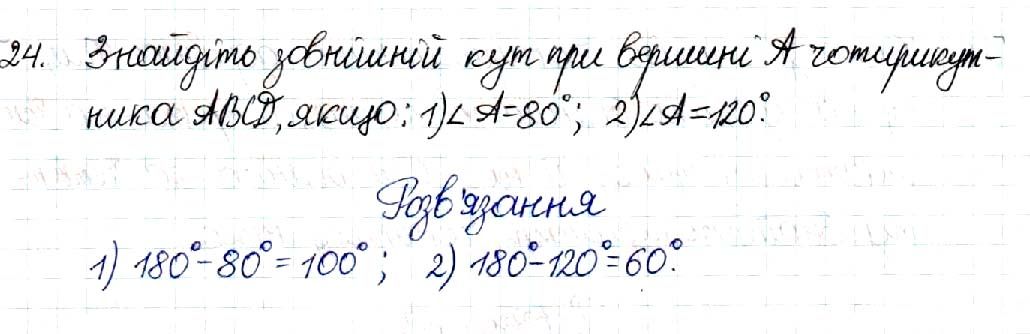 24. Знайдіть зовнішній кут при вершині A чотирикут-
ника ABCD, якщо: 1) ∠A=80°; 2) ∠A=120°.
Розв'язання
1) 180°-80°=100°; 2) 180°-120°=60°.